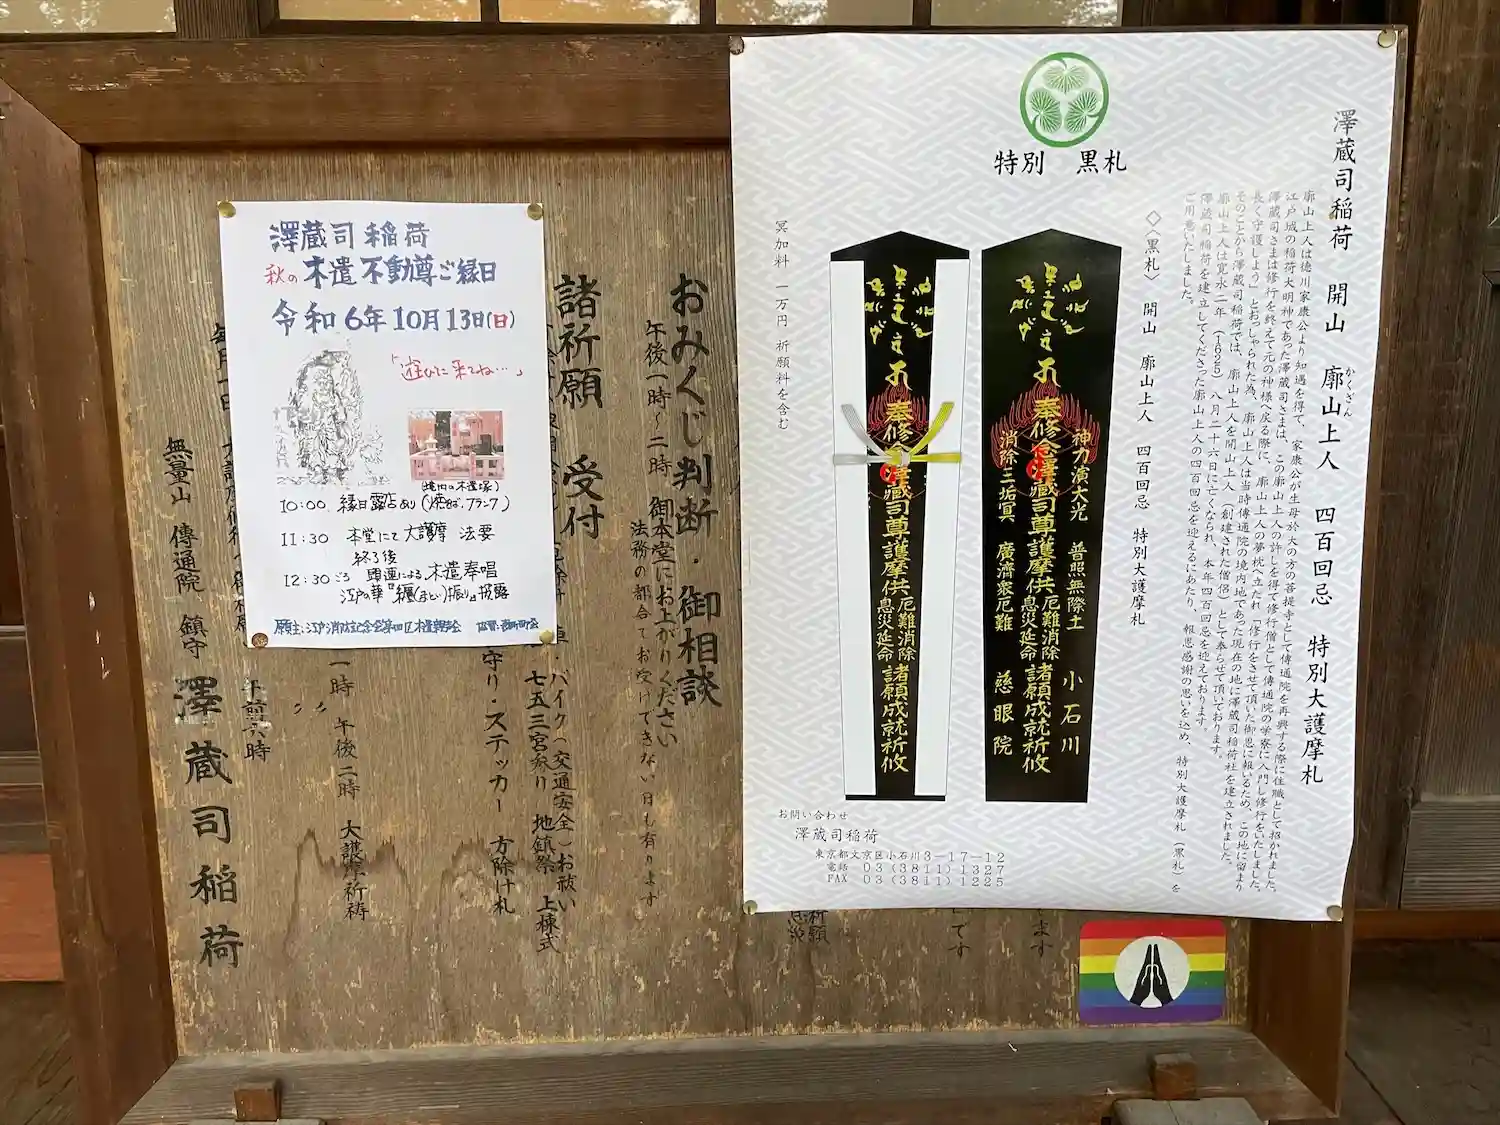 澤蔵司稲荷
秋の木遣不動尊ご縁日
令和6年10月13日(日)
「遊びに来てね…」
(境内の木遣塚)
10:00 縁日露店あり(焼そば、フランク)
11:30 本堂にて大護摩 法要
終了後
12:30ごろ 間違による木遣奉唱
江戸の華『纏(まとい)振り』披露
おみくじ判断・御相談
午後一時~二時 御本堂にお上がりください
法務の都合でお受けできない日も有ります
諸祈願 受付
バイク(交通安全)お祓い
七五三宮参り 地鎮祭 上棟式
守り・ステッカー 方除け札
一時 午後二時 大護摩祈祷
午前六時
無量山 傳通院 鎮守
澤蔵司稲荷
特別 黒札
澤蔵司稲荷 開山 廓山上人 四百回忌 特別大護摩札
かくざん
廓山上人は徳川家康公より知遇を得て、家康公が生母於大の方の菩提寺として傳通院を再興する際に住職として招かれました。
江戸城の稲荷大明神であった澤蔵司さまは、この廓山上人の許しを得て修行僧として傳通院の学寮に入門し修行をいたしました。
澤蔵司さまは修行を終えて元の神様へ戻る際に、廓山上人の夢枕に立たれ「修行をさせて頂いた御恩に報いるため、この地に留まり
長く守護しよう」とおっしゃられた為、廓山上人は当時傳通院の境内地であった現在の地に澤蔵司稲荷社を建立されました。
そのことから澤蔵司稲荷では、廓山上人を開山上人(創建された僧侶)として奉らせて頂いております。
廓山上人は寛永二年(1625)八月二十六日に亡くなられ、本年四百回忌を迎えております。
澤蔵司稲荷を建立してくださった廓山上人の四百回忌を迎えるにあたり、報恩感謝の思いを込め、特別大護摩札(黒札)を
ご用意いたしました。
◇〈黒札〉 開山 廓山上人 四百回忌 特別大護摩札
神力演大光 普照無際土 小石川
奉修 澤蔵司尊護摩供 厄難消除 息災延命 諸願成就祈攸
消除三垢冥 廣済衆厄難 慈眼院
奉修 澤蔵司尊護摩供 厄難消除 息災延命 諸願成就祈攸
冥加料 一万円 祈願料を含む
お問い合わせ
澤蔵司稲荷
東京都文京区小石川3-17-12
電話 03(3811)1327
FAX 03(3811)1225